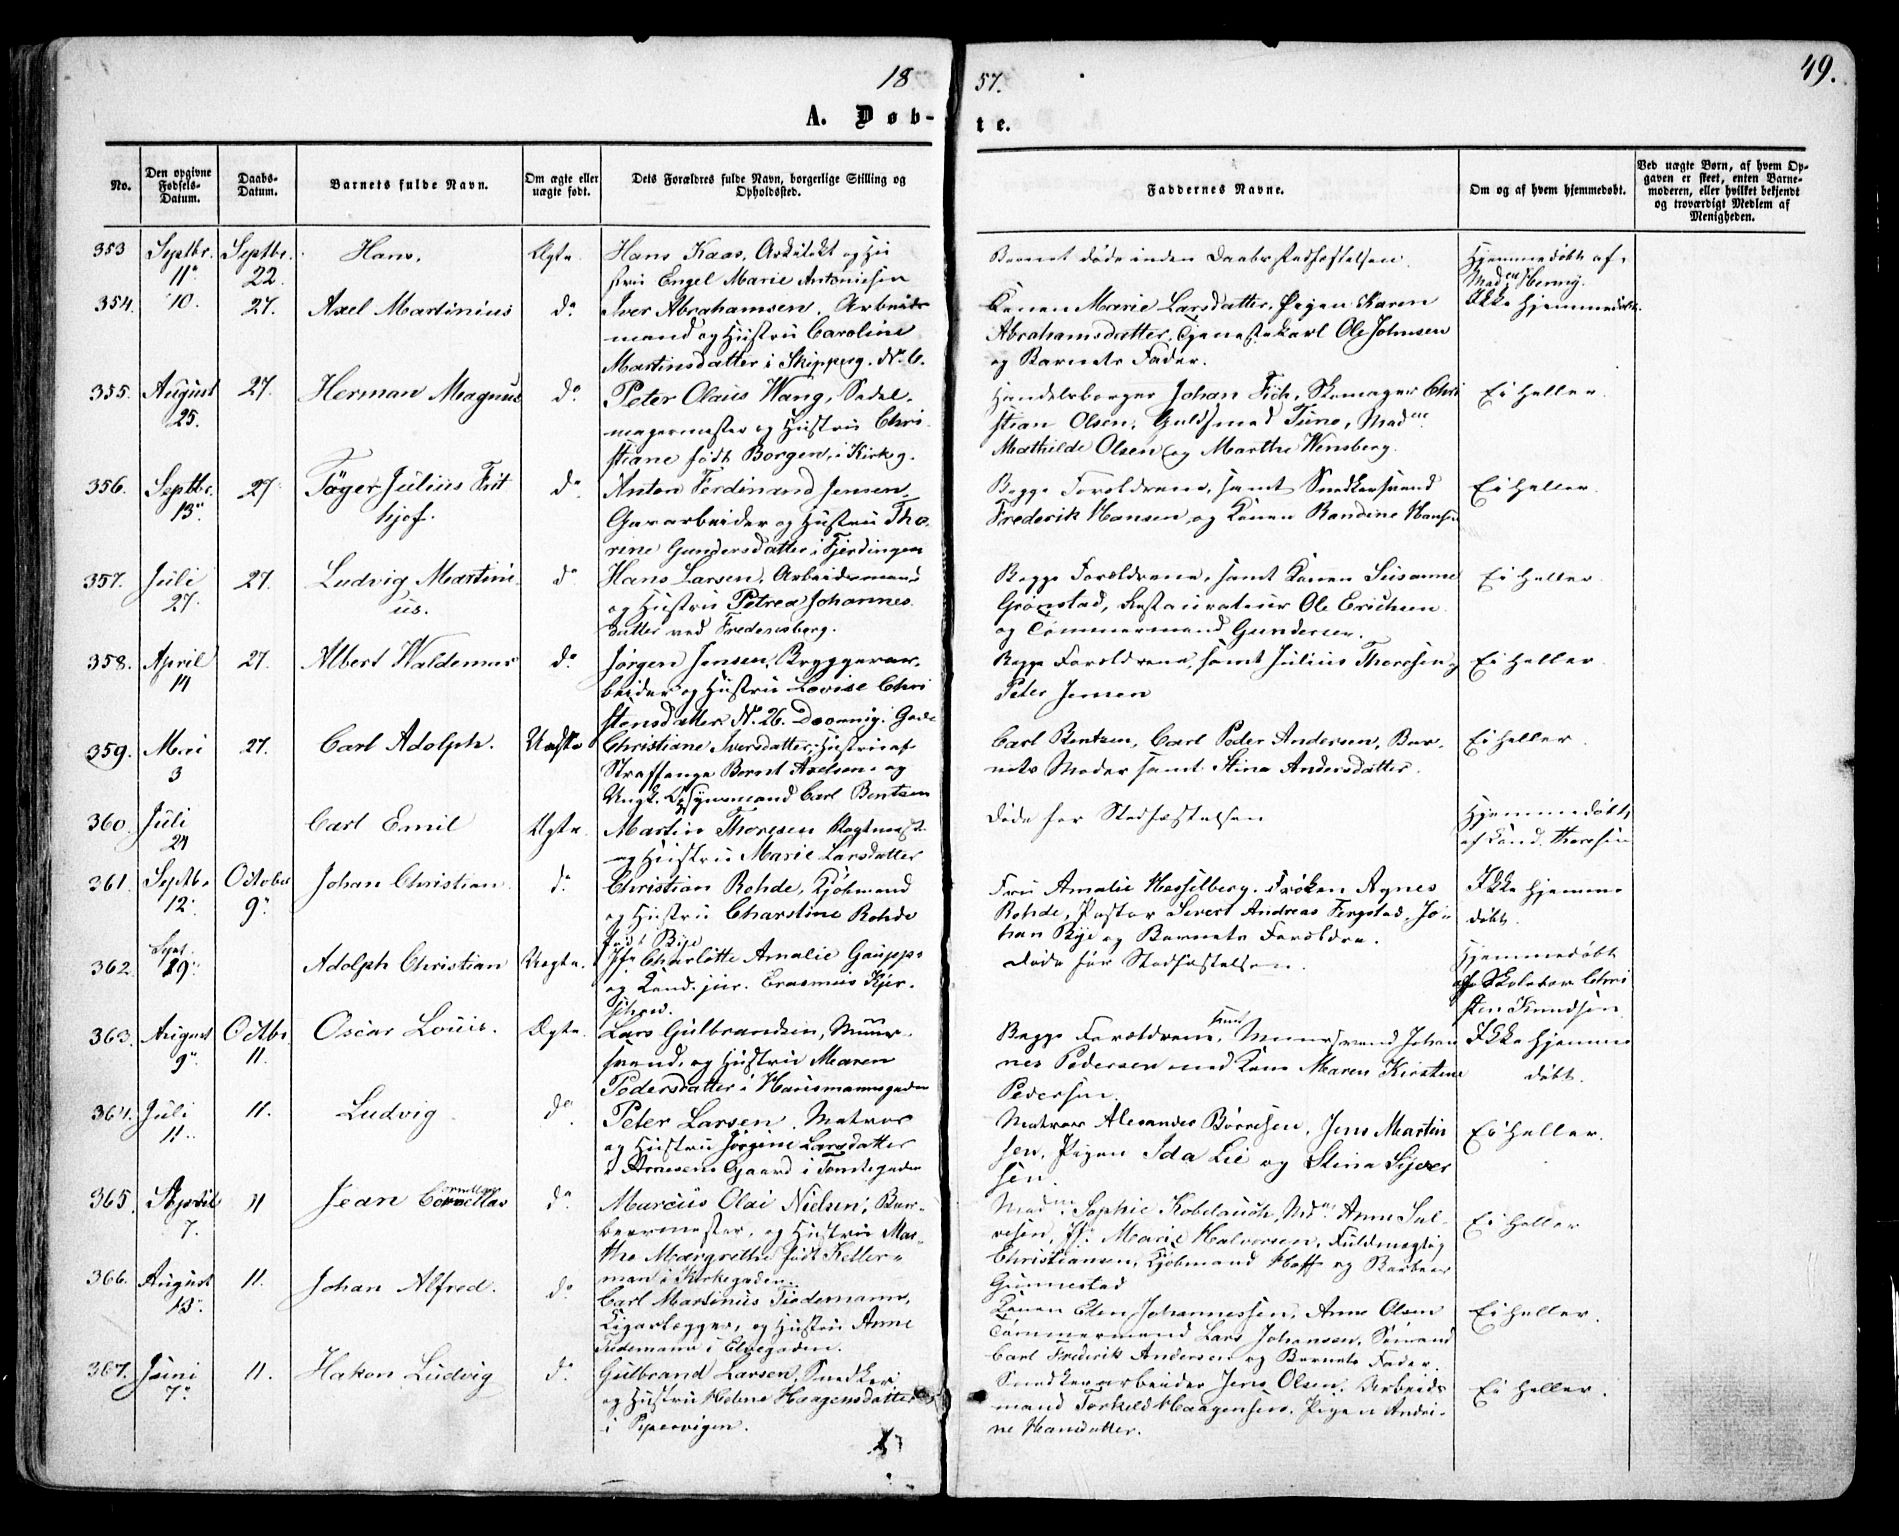 18
57.
49.
A. Døb-
te.
No.
Den opgivne Fødsels-Datum.
Daabs-Datum.
Barnets fulde Navn.
Om ægte eller uægte født.
Dets Forældres fulde Navn, borgerlige Stilling og Opholdssted.
Faddernes Navne.
Om og af hvem hjemmedøbt.
Ved uægte Børn, af hvem Op-
gaven er skeet, enten Barne-
moderen, eller hvilket bekjendt
og troværdigt Medlem af
Menigheden.
353 Septbr. 11 Septbr. 22 Hans. Ægte.
Hans Kaas, Arkitekt og Hu
stru Engel Marie Antonisen
Barnet døde inden Daabsstadfæstelsen.
Hjemmedøbt af
Mad. Henny.
354. 10. 27. Axel Martinius do
Iver Abrahamsen, Arbeids
mand og Hustru Caroline
Martinsdatter i Skipperg. No. 6.
Konen Marie Larsdatter, Pigen Karen
Abrahamsdatter, Tjenestekarl Ole Johnsen
og Barnets Fader.
Ikke hjemmedøbt.
355. August 25. 27. Herman Magnus do
Peter Olaus Wang, Sadel-
magermester og Hustru Chri
stiane født Borgen, i Kirkeg.
Handelsborger Johan Fich, Skomager Chri
stian Olsen, Guldsmed Tune, Madme
Mathilde Olsen og Marthe Wensberg.
Ei heller.
356. Septbr. 13. 27. Jäger Julius Frit
hjof. do
Anton Ferdinand Jensen,
Gasarbeider og Hustru Tho-
rine Gundersdatter i Fjerdingen
Begge Forældrene, samt Snedkersvend
Frederik Hansen og Konen Randine Hansen
Ei heller.
357. Juli 27. 27. Ludvig Martini-
us. do
Hans Larsen, Arbeidsmand
og Hustru Petrea Johannes-
datter ved Fredensberg.
Begge Forældrene, samt Konen Susanne
Grønstad, Restaurateur Ole Erichsen
og Tømmermand Gundersen.
Ei heller.
358. April 14 27. Albert Waldemar do
Jørgen Jensen, Bryggerar-
beider og Hustru Lovise Chri
stensdatter N. 26. Dronnig. Gade
Begge Forældrene, samt Julius Thoresen og
Peter Jensen
Ei heller.
359. Mai 3 27. Carl Adolph. Uægte
Christiane Iversdatter, Hustru af
Straffange Bernt Axelsen og
Ungk. Opsynsmand Carl Bentzen
Carl Bentzen, Carl Peder Andersen, Bar-
nets Moder samt Stina Andersdatter.
Ei heller.
360. Juli 24 Carl Emil Ægte.
Martin Thoresen Vagtmest.
og Hustru Marie Larsdatter
Døde før Stadfæstelsen
Hjemmedøbt
af Cand. Thoresen
361. Septbr. 12. October 9. Johan Christian do
Christian Rohde, Kjøbmand
og Hustru Charstine Rohde
født Bye
Fru Amalie Hesselberg, Frøken Agnes
Rohde, Pastor Severt Andreas Fergstad, Jo-
han Bye og Barnets Forældre.
Ikke hjemme-
døbt.
362. Sept. 29. Adolph Christian Uægte.
Jfr. Charlotte Amalie Gaupps
og Cand. jur. Erasmus Kjer-
schow.
Døde før Stadfæstelsen.
Hjemmedøbt
af Skoletær Chri
sten Knudsen
363. August 9. Octbr. 11. Oscar Louis. Ægte.
Lars Gulbrandsen, Muur-
svend, og Hustru Maren
Pedersdatter i Hausmannsgaden
Begge Forældrene, samt Muursvend Johan
nes Pedersen med Kone Maren Kirstine
Pedersen.
Ikke hjemme
døbt.
364. Juli 11. 11. Ludvig do
Peter Larsen, Matros
og Hustru Jørgine Larsdatter
i Arnesens Gaard i Tomtegaden
Matros Alexander Børresen, Jens Martin
sen, Pigen Ida Lie og Stina Syver
sen.
Ei heller.
365. April 7. 11 Jean Cornellas do
Marcus Olai Nielsen, Bar-
beermester, og Hustru Mar-
the Margrethe født Keller-
man i Kirkegaden.
Madme Sophie Kobelauch, Mdme Anne Sal-
vesen, Jfr. Marie Halvorsen, Fuldmægtig
Christiansen, Kjøbmand Hoff og Barbeer
Gunnestad
Ei heller
366. August 13. 11. Johan Alfred. do
Carl Martinus Tiedemann,
Ligarlægger, og Hustru Anne
Tiedemann i Elvegaden.
Konen Elen Johannessen, Anne Olsen
Tømmermand Lars Johansen, Sømand
Carl Frederik Andersen og Barnets Fader.
Ei heller.
367. Juni 7. 11. Hakon Ludvig do
Gulbrand Larsen, Snedker
og Hustru Helene Haagensdatter
i Pipervigen.
Snedkerarbeider Jens Olsen, Arbeids
mand Torkeld Haagensen, Pigen Andri-
ne Hansdatter.
Ei heller.